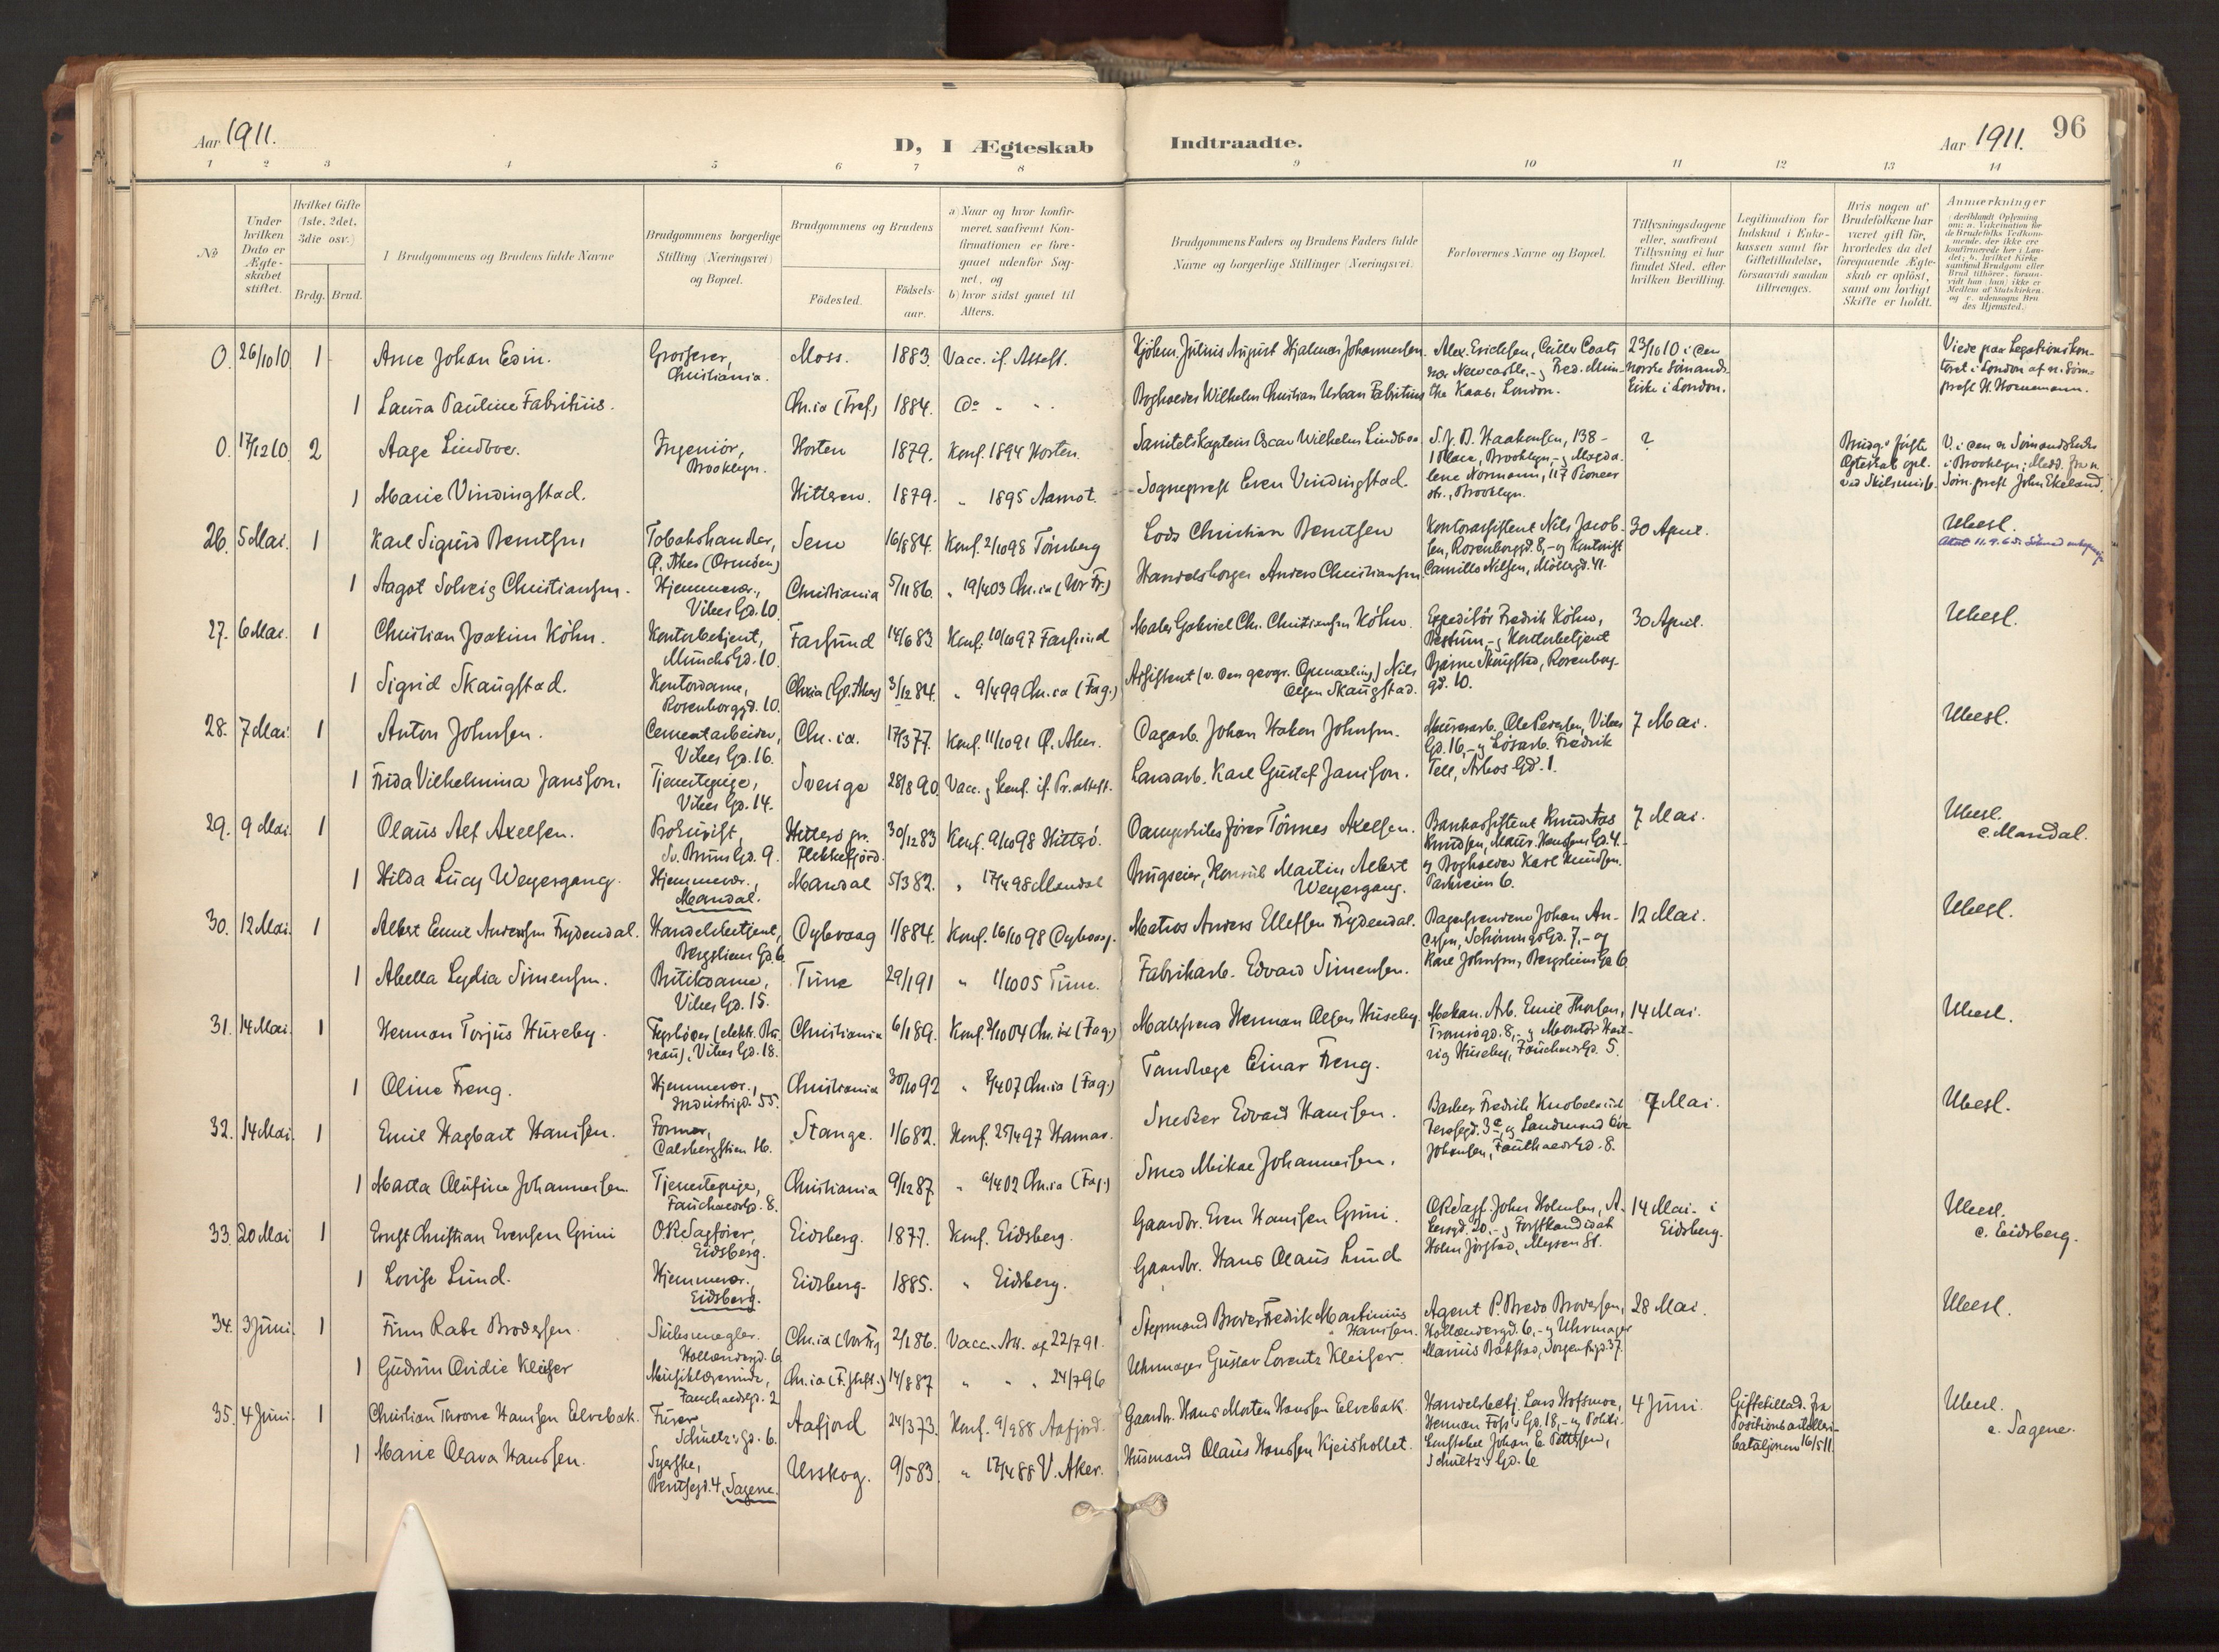 Aar 1911.
D, I Ægteskab
Indtraadte.
96
Aar 1911.
1 2 3 4 5 6 7 8 9 10 11 12 13 14
No
Under hvilken Dato er Ægteskabet stiftet.
Hvilket Gifte (1ste, 2det, 3die osv.)
Brdg. Brud.
1 Brudgommens og Brudens fulde Navne
Brudgommens borgerlige Stilling (Næringsvei) og Bopæl.
Brudgommens og Brudens
Födested.
Födsels-aar.
a) Naar og hvor konfirmeret, saafremt Konfirmationen er foregaaet udenfor Sognet, og
b) hvor sidst gaaet til Alters.
Brudgommens Faders og Brudens Faders fulde Navne og borgerlige Stillinger (Næringsvei)
Forlovernes Navne og Bopæl.
Tillysningsdagene eller, saafremt Tillysning ei har fundet Sted, efter hvilken Bevilling.
Legitimation for Indskud i Enkekassen samt for Giftetilladelse, forsaavidt saadan tiltrænges.
Hvis nogen af Brudefolkene har været gift för, hvorledes da det foregaaende Ægteskab er oplöst, samt om lovligt Skifte er holdt.
Anmærkninger
0. 26/10 10 1 Arne Johan Esin. Grosserer, Christiania. Moss. 1883. Vacc. if. Attest. Kjöbm. Julius August Hjalmar Johannesen. Alex. Erichsen, Culler Coats nær Newcastle,- og Fred. 23/10 10 i den norske Sömands-kirke i London. Viede paa Legationskontoret i London af n. Sömprest H. Hornemann.
1 Laura Pauline Fabritius. Chr.ia (Tref.) 1884. Do " " Bogholder Wilhelm Christian Urban Fabritius London.
0. 17/12 10 2 Aage Lindboe. Ingeniör, Brooklyn. Horten 1879. Konf. 1894 Horten. Sanitetskaptein Oscar Wilhelm Lindboe S. J. D. Haakensen, 138 - 1 Place, Brooklyn,- og Magdalene Normann, 117 Pioneer str., Brooklyn. ? Brudg.s förste Ægteskab opl. ved Skilsmisse. V. i den n. Sömandskirke i Brooklyn; Medd. fra n. Söm.prest John Ekeland.
1 Marie Vindingstad. Hitteren. 1879. " 1895 Aamot. Sogneprest Even Vindingstad.
26. 5 Mai. 1 Karl Sigurd Berntsen, Tobakshandler, Ö. Aker Sem 16/8 84. Konf. 2/10 98 Tönsberg Lods Christian Berntsen Kontorassistent Nils Jacobsen, Rosenborggd. 8,- og Kontorist Camillo Nilsen, Möllergd. 41. 30 April. Ubesl.
1 Aagot Solveig Christiansen. Hjemmevær., Vibes Gd. 10. Christiania 5/11 86. " 19/4 03 Chr.ia (Vor Fr.) Handelsborger Anders Christiansen
27. 6 Mai. 1 Christian Joakim Köhn. Kontorbetjent, Munchs Gd. 10. Farsund 14/6 83. Konf. 10/10 97 Farsund Maler Gabriel Chr. Christiansen Köhn. Expeditör Fredrik Köhn, Bestum,- og Kontorbetjent Bjarne Skaugstad, Rosenborggd. 10. 30 April. Ubesl.
1 Sigrid Skaugstad. Kontordame, Rosenborggd. 10. Chr.ia (Gl. Aker) 3/12 84. " 9/4 99 Chr.ia (Fag.) Assistent (v. den geogr. Opmaaling) Nils Olsen Skaugstad.
28. 7 Mai. 1 Anton Johnsen. Cementarbeider, Vibes Gd. 16. Chr.ia. 17/3 77. Konf. 11/10 91 Ö. Aker. Dagarb. Johan Haken Johnsen. Murerarb. Ole Pedersen, Vibes Gd. 16,- og Lösarb. Fredrik Tell, Arbos Gd. 1. 7 Mai. Ubesl.
1 Frida Vilhelmina Jansson. Tjenestepige, Vibes Gd. 14. Sverige 28/8 90 Vacc. og konf. if. Pr.attest. Landarb. Karl Gustaf Jansson.
29. 9 Mai. 1 Olaus Alf Axelsen. Prokurist, Sv. Bruns Gd. 9. Hitterö pr. Flekkefjord. 30/12 83 Konf. 9/10 98 Hitterö. Dampskibsförer Tönnes Axelsen. Bankassistent Knud Aas Knudsen, Maur. Hansens Gd. 4.- og Bogholder Karl Knudsen. Parkveien 6. 7 Mai. Ubesl. c. Mandal.
1 Hilda Lucy Weyergang. Hjemmevær., Mandal. Mandal 5/3 82. " 17/4 98 Mandal Brugseier, Konsul Martin Albert Weyergang.
30. 12 Mai. 1 Albert Emil Andersen Frydendal. Handelsbetjent, Bergslien Gd. 6 Dybvaag 1/8 84. Konf. 16/10 98 Dybvaag. Matros Anders Ellefsen Frydendal. Bagersvend Johan Andersen, Schönings Gd. 7,- og Karl Johnsen, Bergsliens Gd 6. 12 Mai. Ubesl.
1 Abella Lydia Simensen. Butikdame, Vibes Gd. 15. Tune 29/1 91 " 1/10 05 Tune. Fabrikarb. Edvard Simensen.
31. 14 Mai. 1 Herman Torjus Huseby. (elektr. Bureau), Vibes Gd. 18. Christiania 6/1 89. Konf. 2/10 04 Chr.ia (Fag.) Malersvend Herman Olsen Huseby. Mekan. Arb. Emil Thorsen, Tromsögd. 8,- og Montör Hartvig Huseby, Fauchalds Gd. 5. 14 Mai. Ubesl.
1 Oline Freng. Hjemmevær., Industrigd. 55. Christiania 30/10 92 " 7/4 07 Chr.ia (Fag.) Tandlæge Einar Freng.
32. 14 Mai. 1 Emil Hagbart Hansen. Former, Calsbergstien 16. Stange. 1/6 82. Konf. 25/4 97 Hamar. Snedker Edvard Hansen. Barber Fredrik 3 e,- og Landmand Johansen, Fauchalds Gd. 8. 7 Mai. Ubesl.
1 Marta Olufine Johannesen. Tjenestepige, Fauchalds Gd. 8. Christiania 9/12 87. " 6/4 02 Chr.ia (Fag.) Smed Mikal Johannesen.
33. 20 Mai 1 Ernst Christian Evensen Grini O.R.Sagförer, Eidsberg. Eidsberg. 1877. Konf. Eidsberg. Gaardbr. Even Hansen Grini. ORSagf. John Holmsen, 20,- og Forstkandidat Holm Jörstad, Mysen St. 14 Mai- i Eidsberg. Ubesl. c. Eidsberg.
1 Lovise Lund. Hjemmevær., Eidsberg. Eidsberg. 1885. " Eidsberg. Gaardbr. Hans Olaus Lund
34. 3 Juni. 1 Finn Rabe Brodersen. Skibsmegler. Hollendergd. 6 Chr.ia (Vor Fr.) 2/1 86. Vacc. Att. af 22/7 91. Styrmand Broder Fredrik Martinius Hansen. Agent P. Bredo Brodersen, Hollendergd. 6,- og Uhrmager Marius Bakstad, Torgenfrigd. 37. 28 Mai. Ubesl.
1 Gudrun Ovidie Kleiser Musiklærerinde, Fauchaldsgd. 2 14/8 87 " " " 24/7 96 Uhrmager Gustav Lorentz Kleiser.
35. 4 Juni. 1 Christian Throne Hansen Elvebak. Furer, Schultz's Gd. 6. Aafjord 24/3 73. Konf. 9/9 88 Aafjord. Gaardbr. Hans Morten Hanssen Elvebak. Handelsbetj. Lars Hofsmoe, Herman Foss's Gd. 18,- og Politikonstabel Johan E. Pettersen, Schultz's Gd. 6 4 Juni. Giftetillad. fra Positionsartilleribataljonen 16/5 11. Ubesl. c. Sagene.
1 Marie Olava Hanssen. Syerske, Bentsegd. 4, Sagene. Urskog. 9/5 83. " V. Aker. Husmand Olaus Hanssen Kjeishollet.